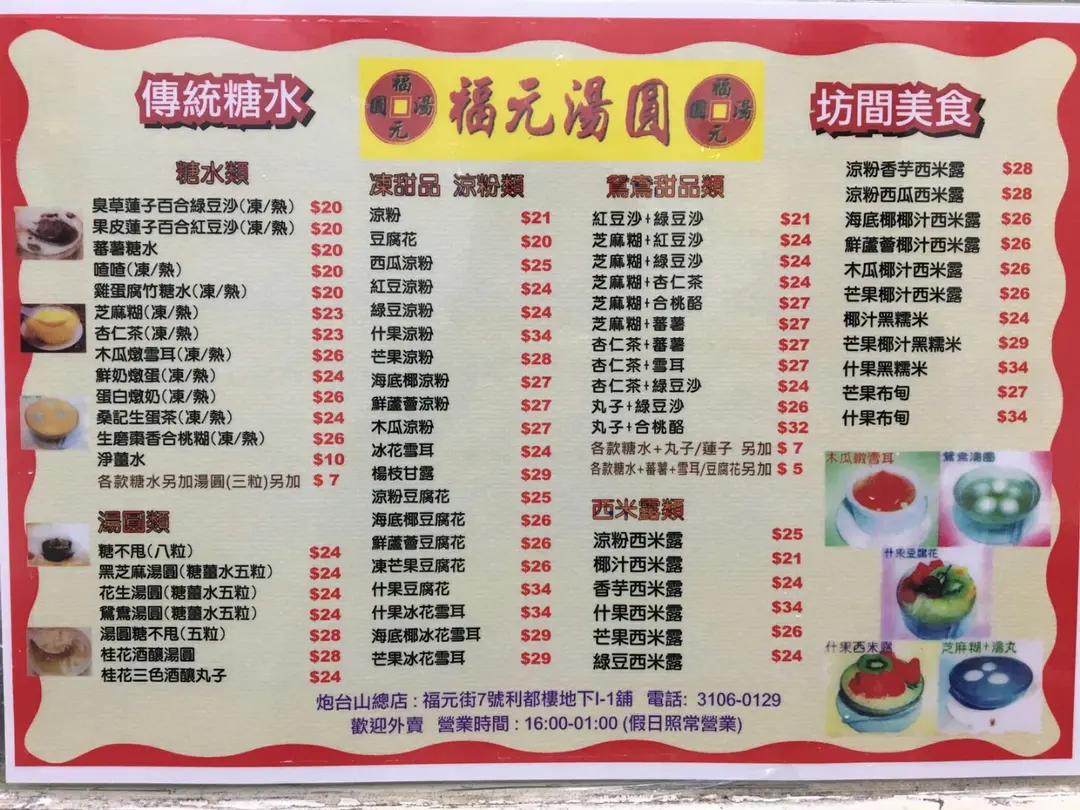 傳統糖水
福元湯圓
福元湯圓
福元湯圓
坊間美食
糖水類
臭草蓮子百合綠豆沙(凍/熱) $20
果皮蓮子百合紅豆沙(凍/熱) $20
蕃薯糖水 $20
喳喳(凍/熱) $20
雞蛋腐竹糖水(凍/熱) $20
芝麻糊(凍/熱) $23
杏仁茶(凍/熱) $23
木瓜燉雪耳(凍/熱) $26
鮮奶燉蛋(凍/熱) $24
蛋白燉奶(凍/熱) $26
桑記生蛋茶(凍/熱) $24
生磨棗香合桃糊(凍/熱) $26
淨薑水 $10
各款糖水另加湯圓(三粒)另加 $7
湯圓類
糖不甩(八粒) $24
黑芝麻湯圓(糖薑水五粒) $24
花生湯圓(糖薑水五粒) $24
鴛鴦湯圓(糖薑水五粒) $24
湯圓糖不甩(五粒) $28
桂花酒釀湯圓 $28
桂花三色酒釀丸子 $24
凍甜品 涼粉類
涼粉 $21
豆腐花 $20
西瓜涼粉 $25
紅豆涼粉 $24
綠豆涼粉 $24
什果涼粉 $34
芒果涼粉 $28
海底椰涼粉 $27
鮮蘆薈涼粉 $27
木瓜涼粉 $27
冰花雪耳 $24
楊枝甘露 $29
涼粉豆腐花 $25
海底椰豆腐花 $26
鮮蘆薈豆腐花 $26
凍芒果豆腐花 $26
什果豆腐花 $34
什果冰花雪耳 $34
海底椰冰花雪耳 $29
芒果冰花雪耳 $29
鴛鴦甜品類
紅豆沙+綠豆沙 $21
芝麻糊+紅豆沙 $24
芝麻糊+綠豆沙 $24
芝麻糊+杏仁茶 $24
芝麻糊+合桃酪 $27
芝麻糊+蕃薯 $27
杏仁茶+蕃薯 $27
杏仁茶+雪耳 $27
杏仁茶+綠豆沙 $24
丸子+綠豆沙 $26
丸子+合桃酪 $32
各款糖水+丸子/蓮子 另加 $7
各款糖水+蕃薯+雪耳/豆腐花另加 $5
西米露類
涼粉西米露 $25
椰汁西米露 $21
香芋西米露 $24
什果西米露 $34
芒果西米露 $26
綠豆西米露 $24
涼粉香芋西米露 $28
涼粉西瓜西米露 $28
海底椰椰汁西米露 $26
鮮蘆薈椰汁西米露 $26
木瓜椰汁西米露 $26
芒果椰汁西米露 $26
椰汁黑糯米 $24
芒果椰汁黑糯米 $29
什果黑糯米 $34
芒果布甸 $27
什果布甸 $34
木瓜嫩雪耳
鴛鴦湯圓
什果豆腐花
什果西米露
芝麻糊+湯丸
炮台山總店:福元街7號利都樓地下I-1舖 電話: 3106-0129
歡迎外賣 營業時間:16:00-01:00 (假日照常營業)